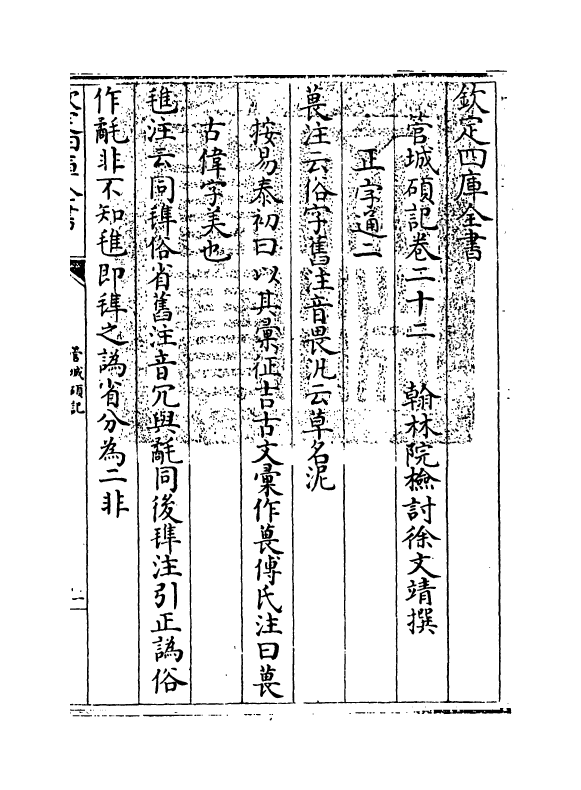 欽定四庫全書
管城碩記卷二十二 翰林院檢討徐文靖撰
正字通二
葨注云俗字舊注音畏汎云草名泥
按易泰初曰以其彙征吉古文彙作葨傅氏注曰葨
古偉字美也
注云同俗省舊注音冗與氄同後注引正譌俗
作氄非不知即之譌省分為二非
欽定四庫全書
管城碩記
一